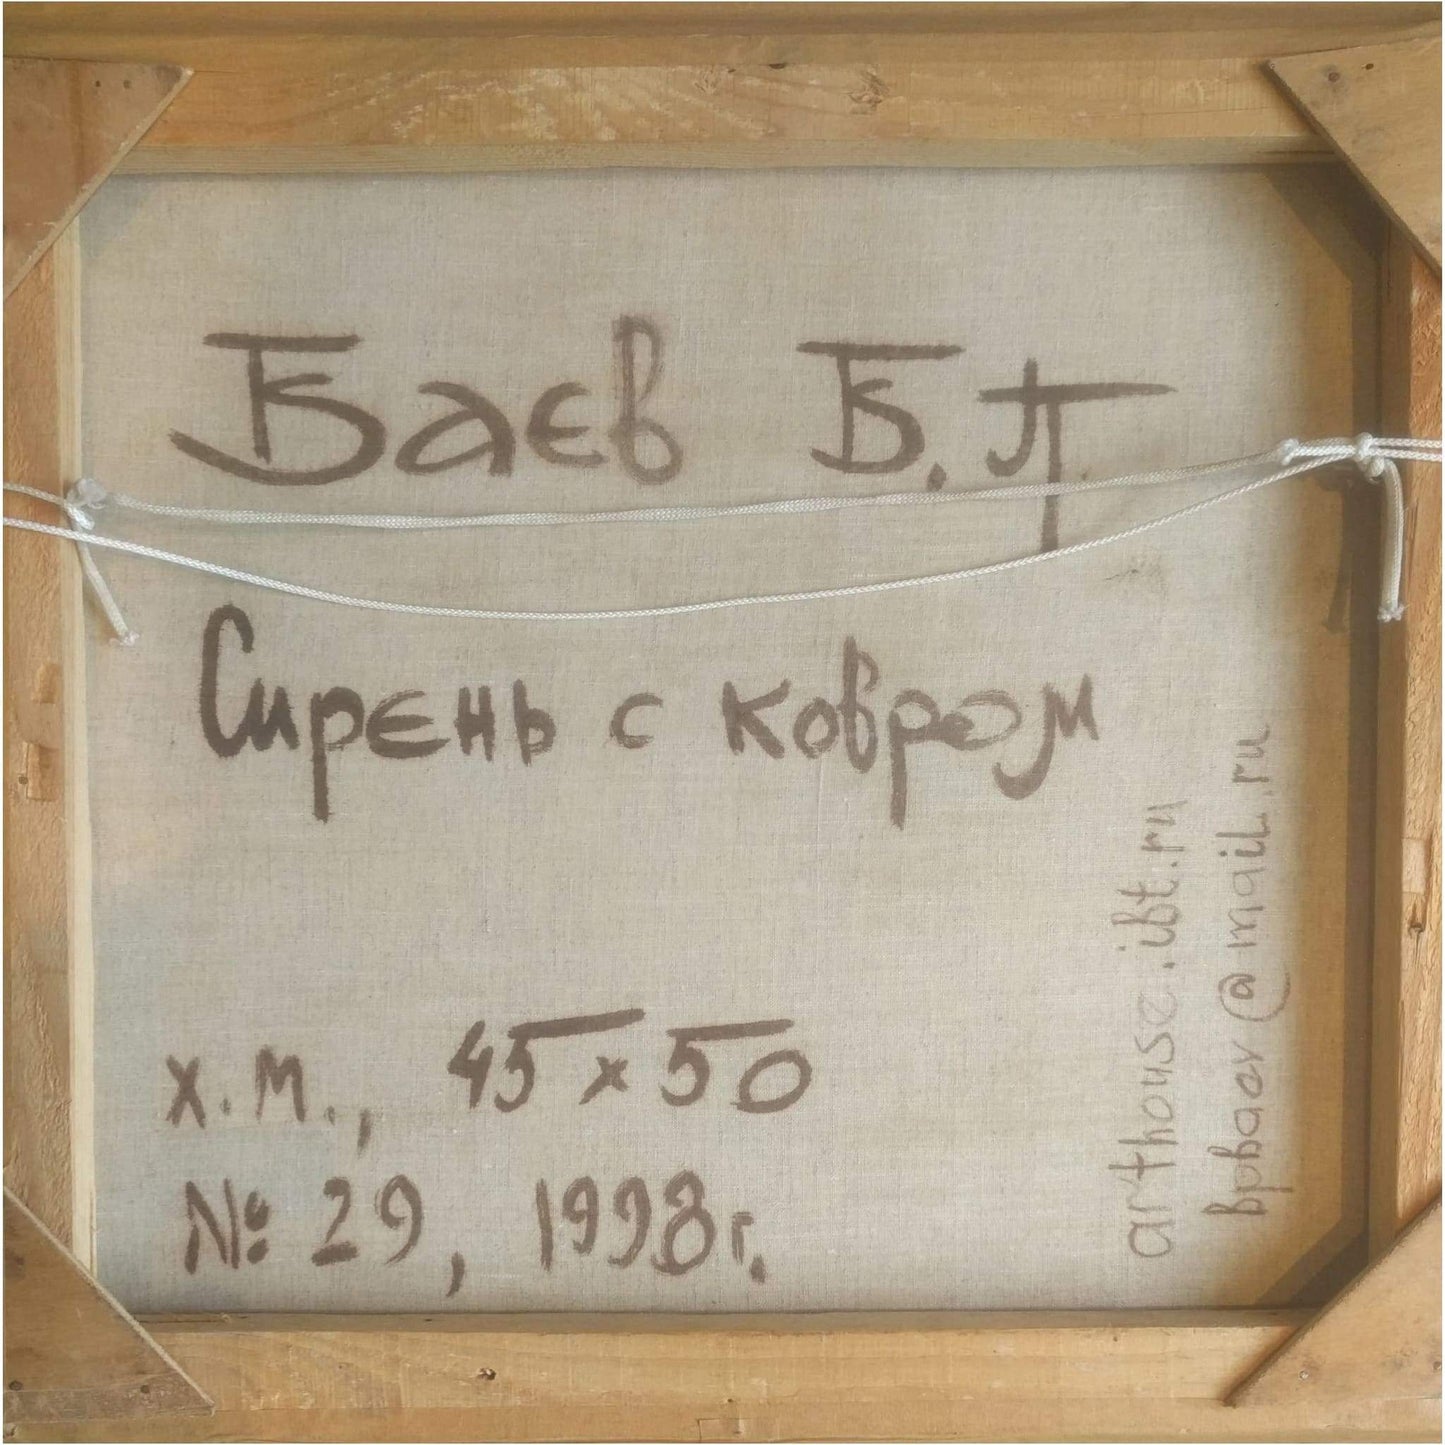 Баев Б.П.
Сирень с ковром
х.м., 45 x 50
№ 29, 1998 г.
arthouse.ibt.ru
bpbaev@mail.ru